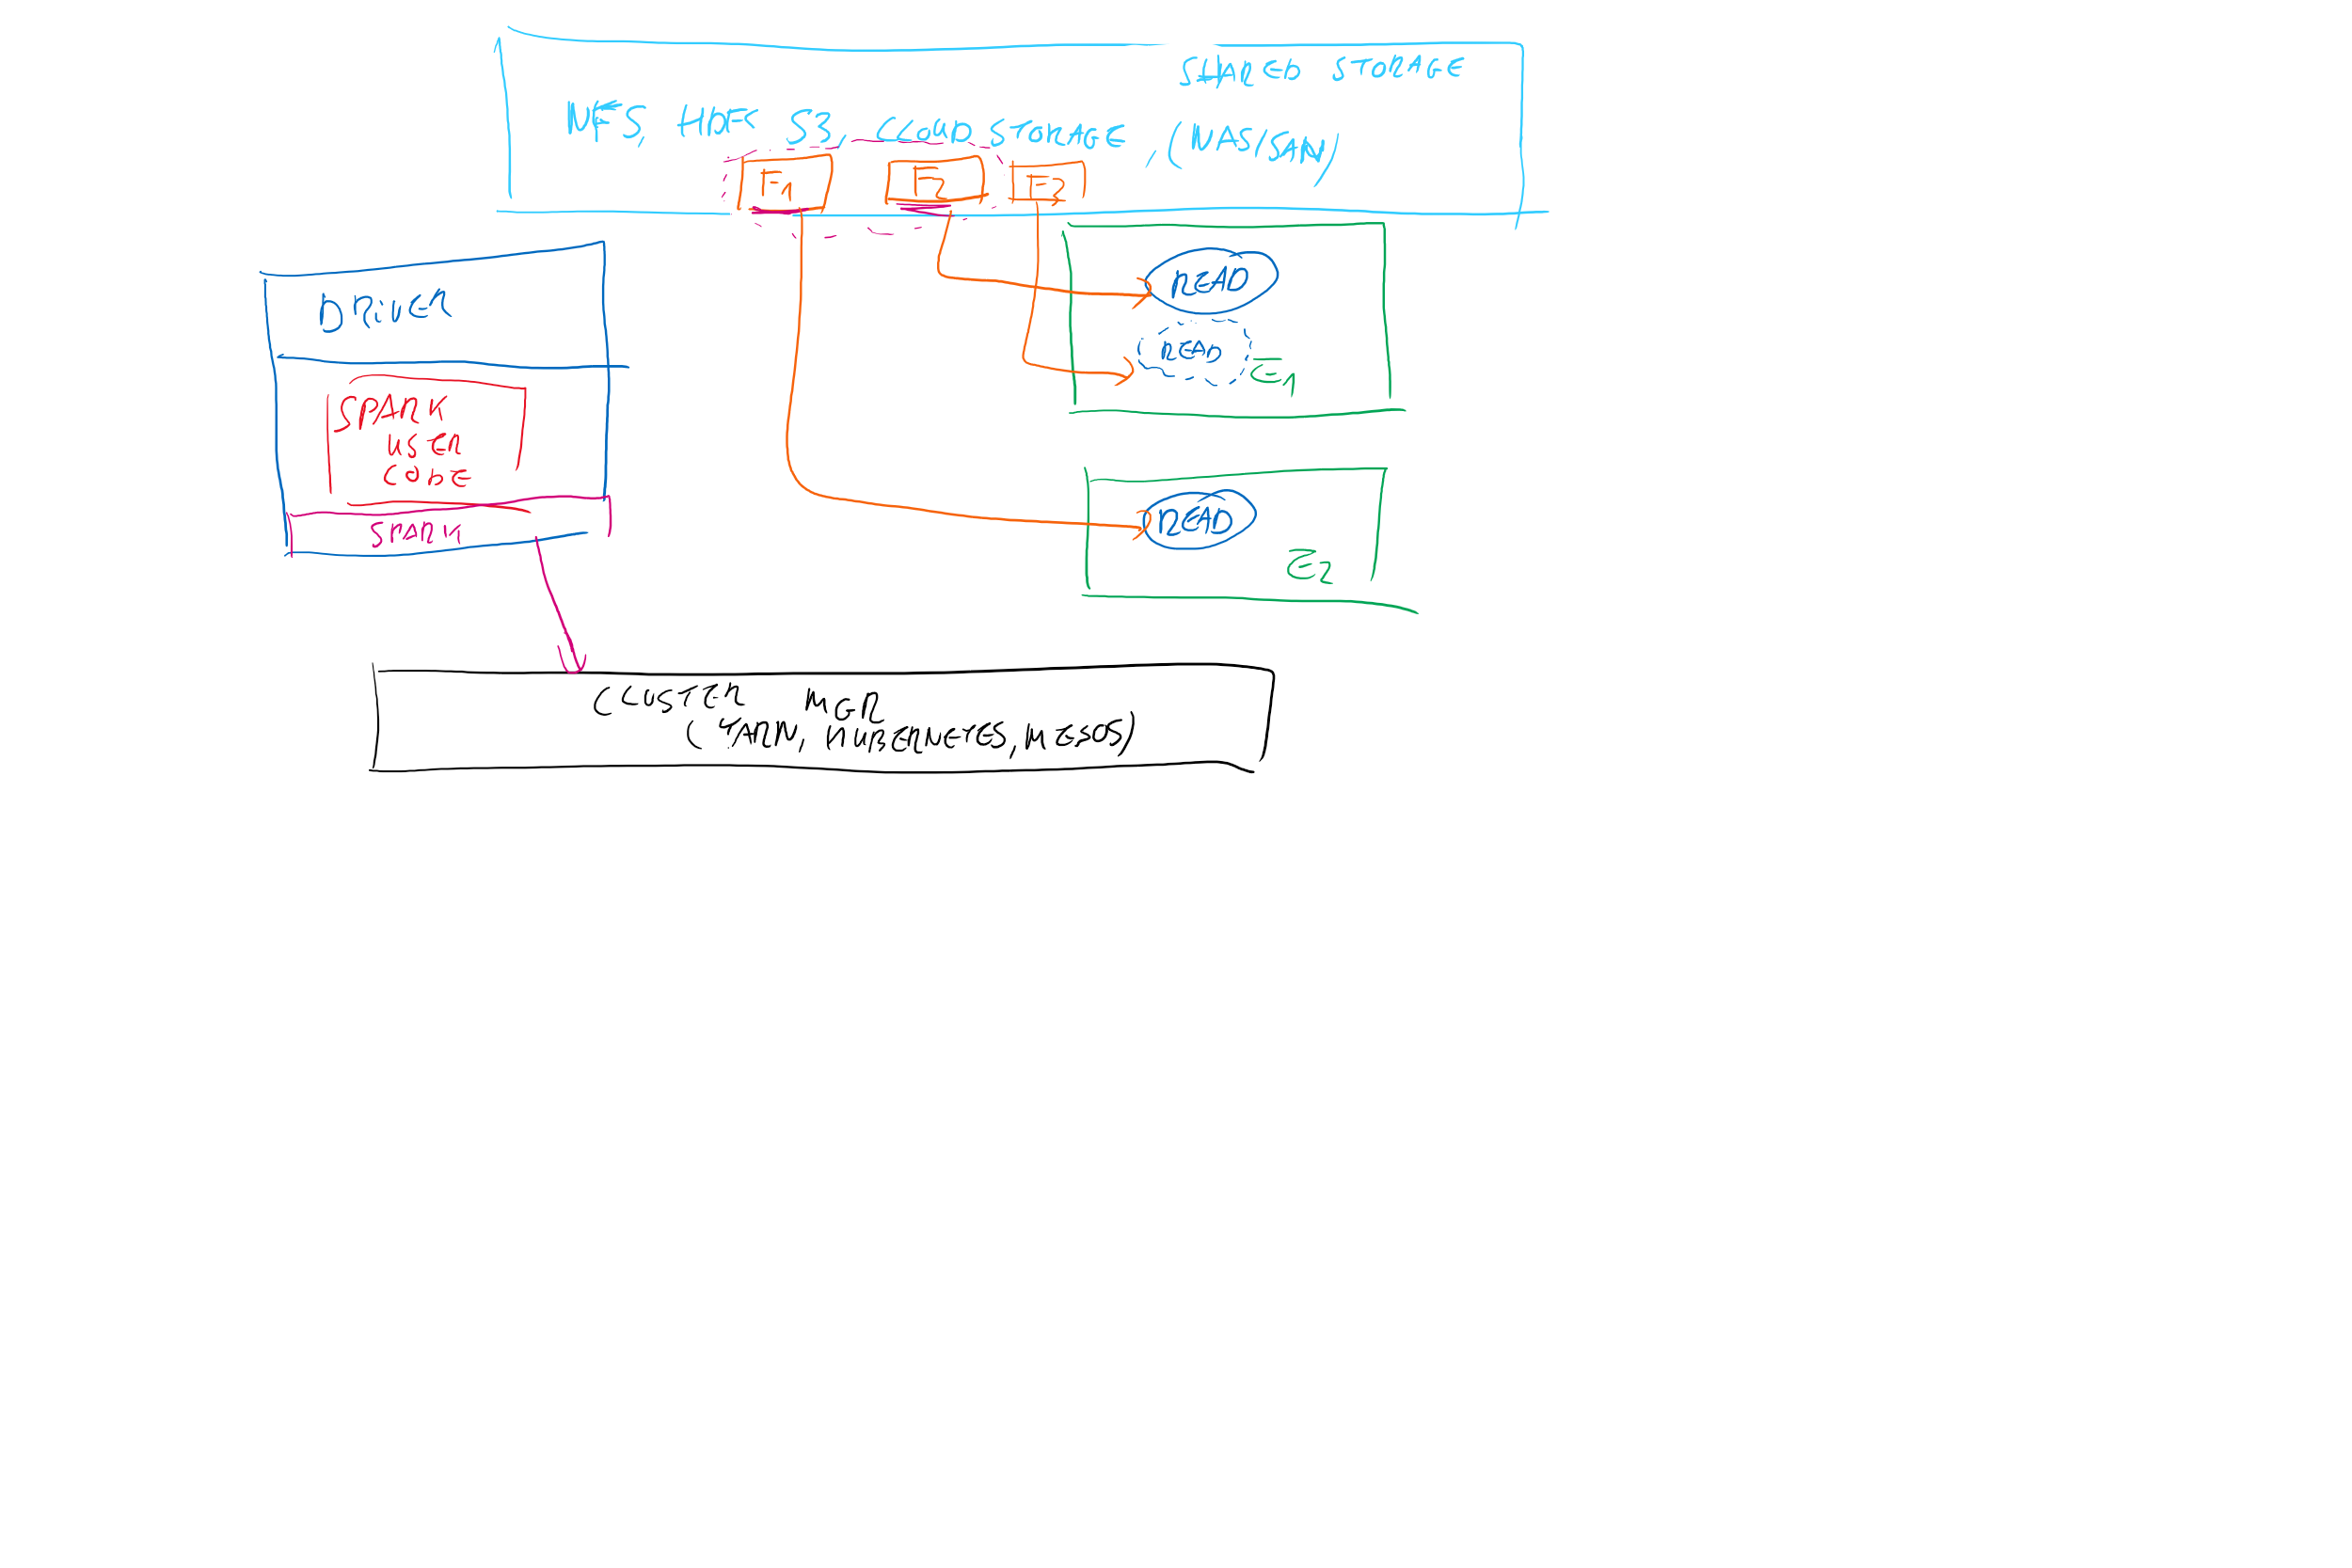 SHARED STORAGE
NFS, HDFS S3, CLOUD STORAGE, (NAS/SAN)
F1 F2 F3
DRIVER
READ
READ
E1
SPARK
USER
CODE
SPARK
READ
E2
CLUSTER MGR
(YARN, KUBERNETES, MESOS)